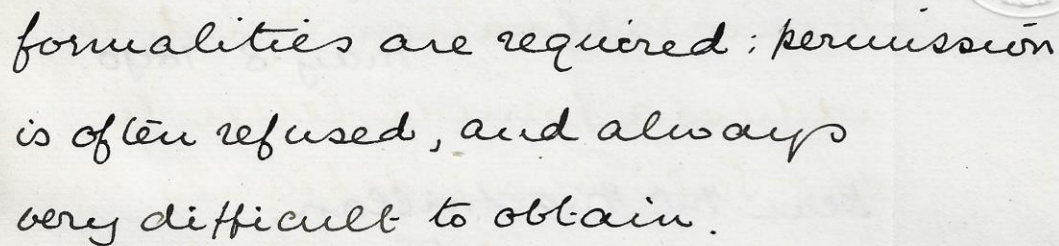 formalities are required : permission
is often refused, and always
very difficult to obtain.